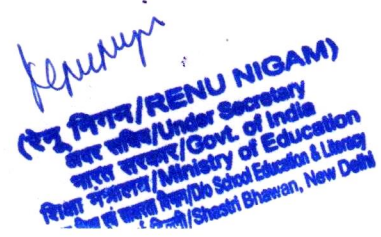 (रेनू निगम/RENU NIGAM)
अवर सचिव/Under Secretary
भारत सरकार/Govt. of India
शिक्षा मंत्रालय/Ministry of Education
/D/o School Education & Literacy
/Shastri Bhawan, New Delhi